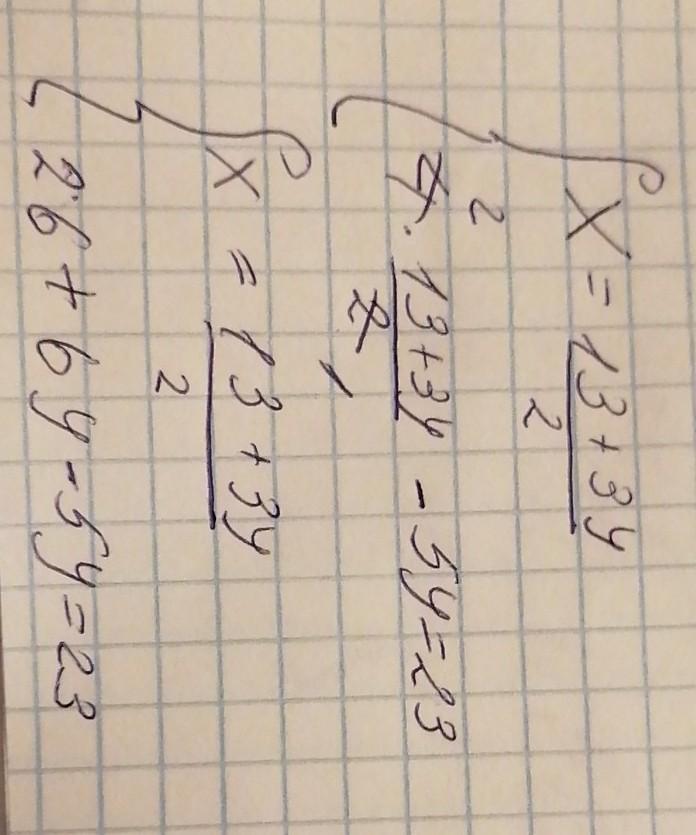 x = 13 + 3y / 2
4 · 13 + 3y / 2 - 5y = 23
2 1
x = 13 + 3y / 2
26 + 6y - 5y = 23